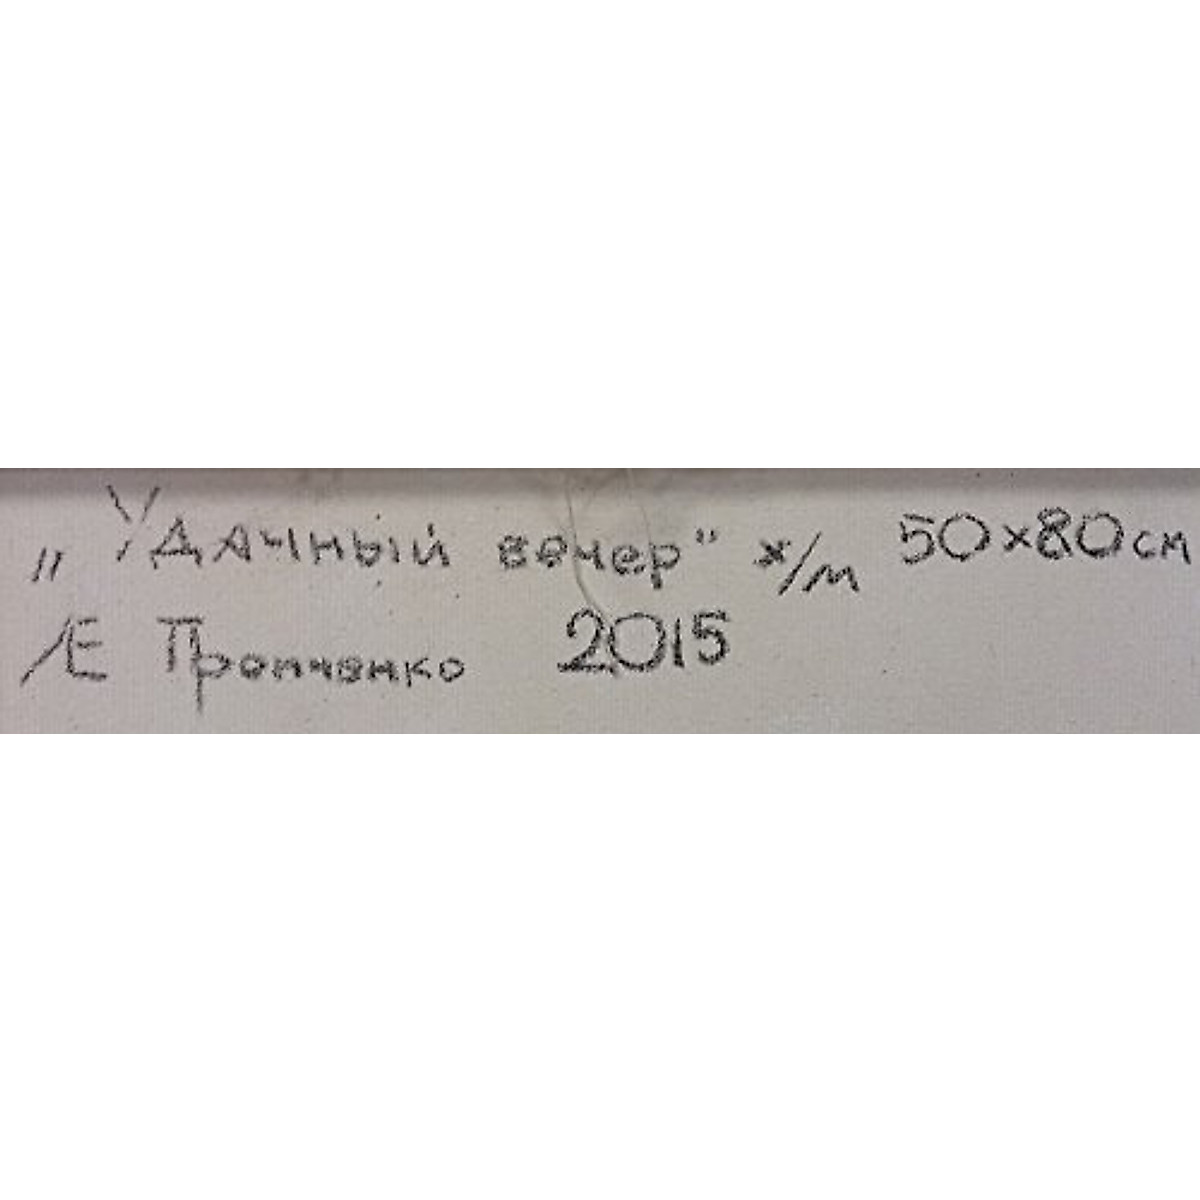 „Удачный вечер" х/м 50х80см
ЛЕ Пропченко 2015